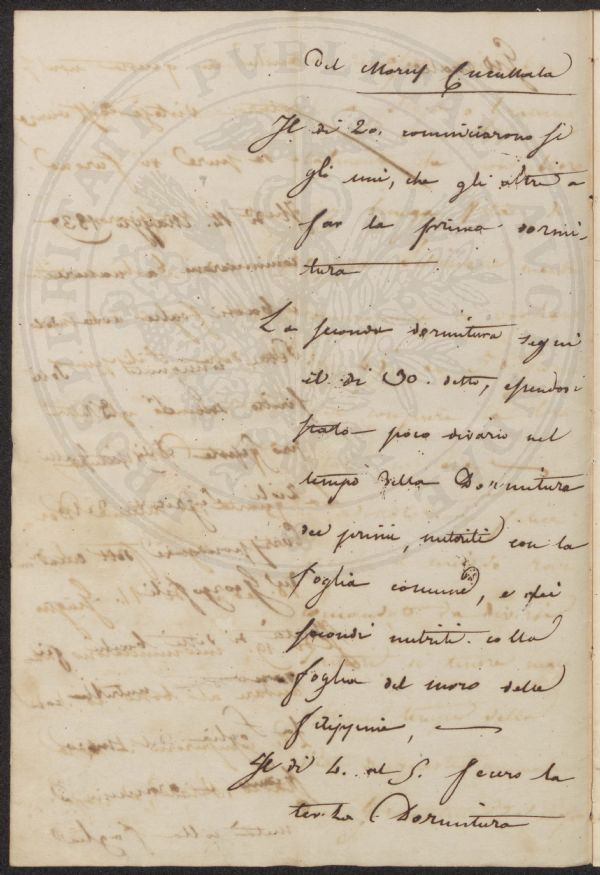 del Morus Cucullata
Il di 20. cominciarono sì
gli uni, che gli altri a
far la prima dormi-
tura
La seconda dormitura seguì
il di 30. detto, essendovi
stato poco divario nel
tempo della Dormitura
dei primi, nutriti con la
foglia comune, e dei
secondi nutriti colla
foglia del moro delle
Filippine,
Il di 4. al 5. fecero la
terza Dormitura